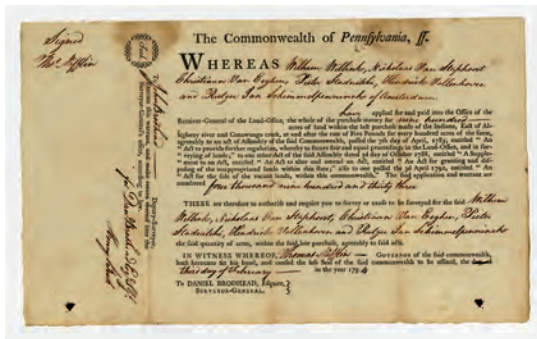 Signed
Tho. Mifflin
Seal
The Commonwealth of Pennsylvania, ss.
WHEREAS Wilhem Willink, Nicholas Van Staphorst
Christiaan Van Eeghen, Pieter Stadnitski, Hendrick Vollenhoven
and Rutger Jan Schimmelpenninck of Amsterdam
have applied for and paid into the Office of the
Receiver-General of the Land-Office, the whole of the purchase money for nine hundred
acres of land within the last purchase made of the Indians, East of Al-
legheny river and Conewango creek, at the rate of Five Pounds for every hundred acres of the same,
agreeably to an act of Assembly of the said Commonwealth, passed the 7th day of April, 1785, entitled "An
Act to provide further regulations, whereby to secure fair and equal proceedings in the Land-Office, and in sur-
veying of lands;" to one other Act of the said Assembly dated 3d day of October 1788, entitled "A Supple-
ment to an Act, entitled "An Act to alter and amend an Act, entitled "An Act for granting and dis-
posing of the unappropriated lands within this state;" also to one passed the 3d April 1792, entitled "An
Act for the sale of the vacant lands, within this commonwealth." The said application and warrant are
numbered four thousand nine hundred and thirty three
THESE are therefore to authorize and require you to survey or cause to be surveyed for the said Wilhem
Willink, Nicholas Van Staphorst, Christiaan Van Eeghen, Pieter
Stadnitski, Hendrick Vollenhoven and Rutger Jan Schimmelpenninck
the said quantity of acres, within the said late purchase, agreeably to said acts.
IN WITNESS WHEREOF, Thomas Mifflin GOVERNOR of the said commonwealth,
hath hereunto set his hand, and caused the less seal of the said commonwealth to be affixed, the
third day of February in the year 1794
To DANIEL BRODHEAD, Esquire,
SURVEYOR-GENERAL.
To John Brodhead Deputy-Surveyor.
Execute this warrant, and make return of survey into the
Surveyor-General's office, according to law.
for Dan Brodhead Esq. S.G.